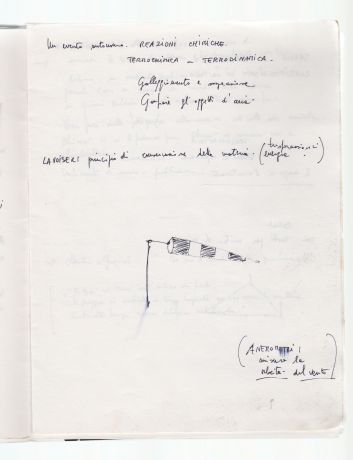 Un evento . REAZIONI CHIMICHE.
TERMOCHIMICA - TERMODINAMICA.
Galleggiamento e
Gonfiare gli oggetti d'aria.
LAVOISERI principio di conservazione della materia. (trasformazioni
energia.)
(ANEMOMETRI:
misura la
velocità del vento)